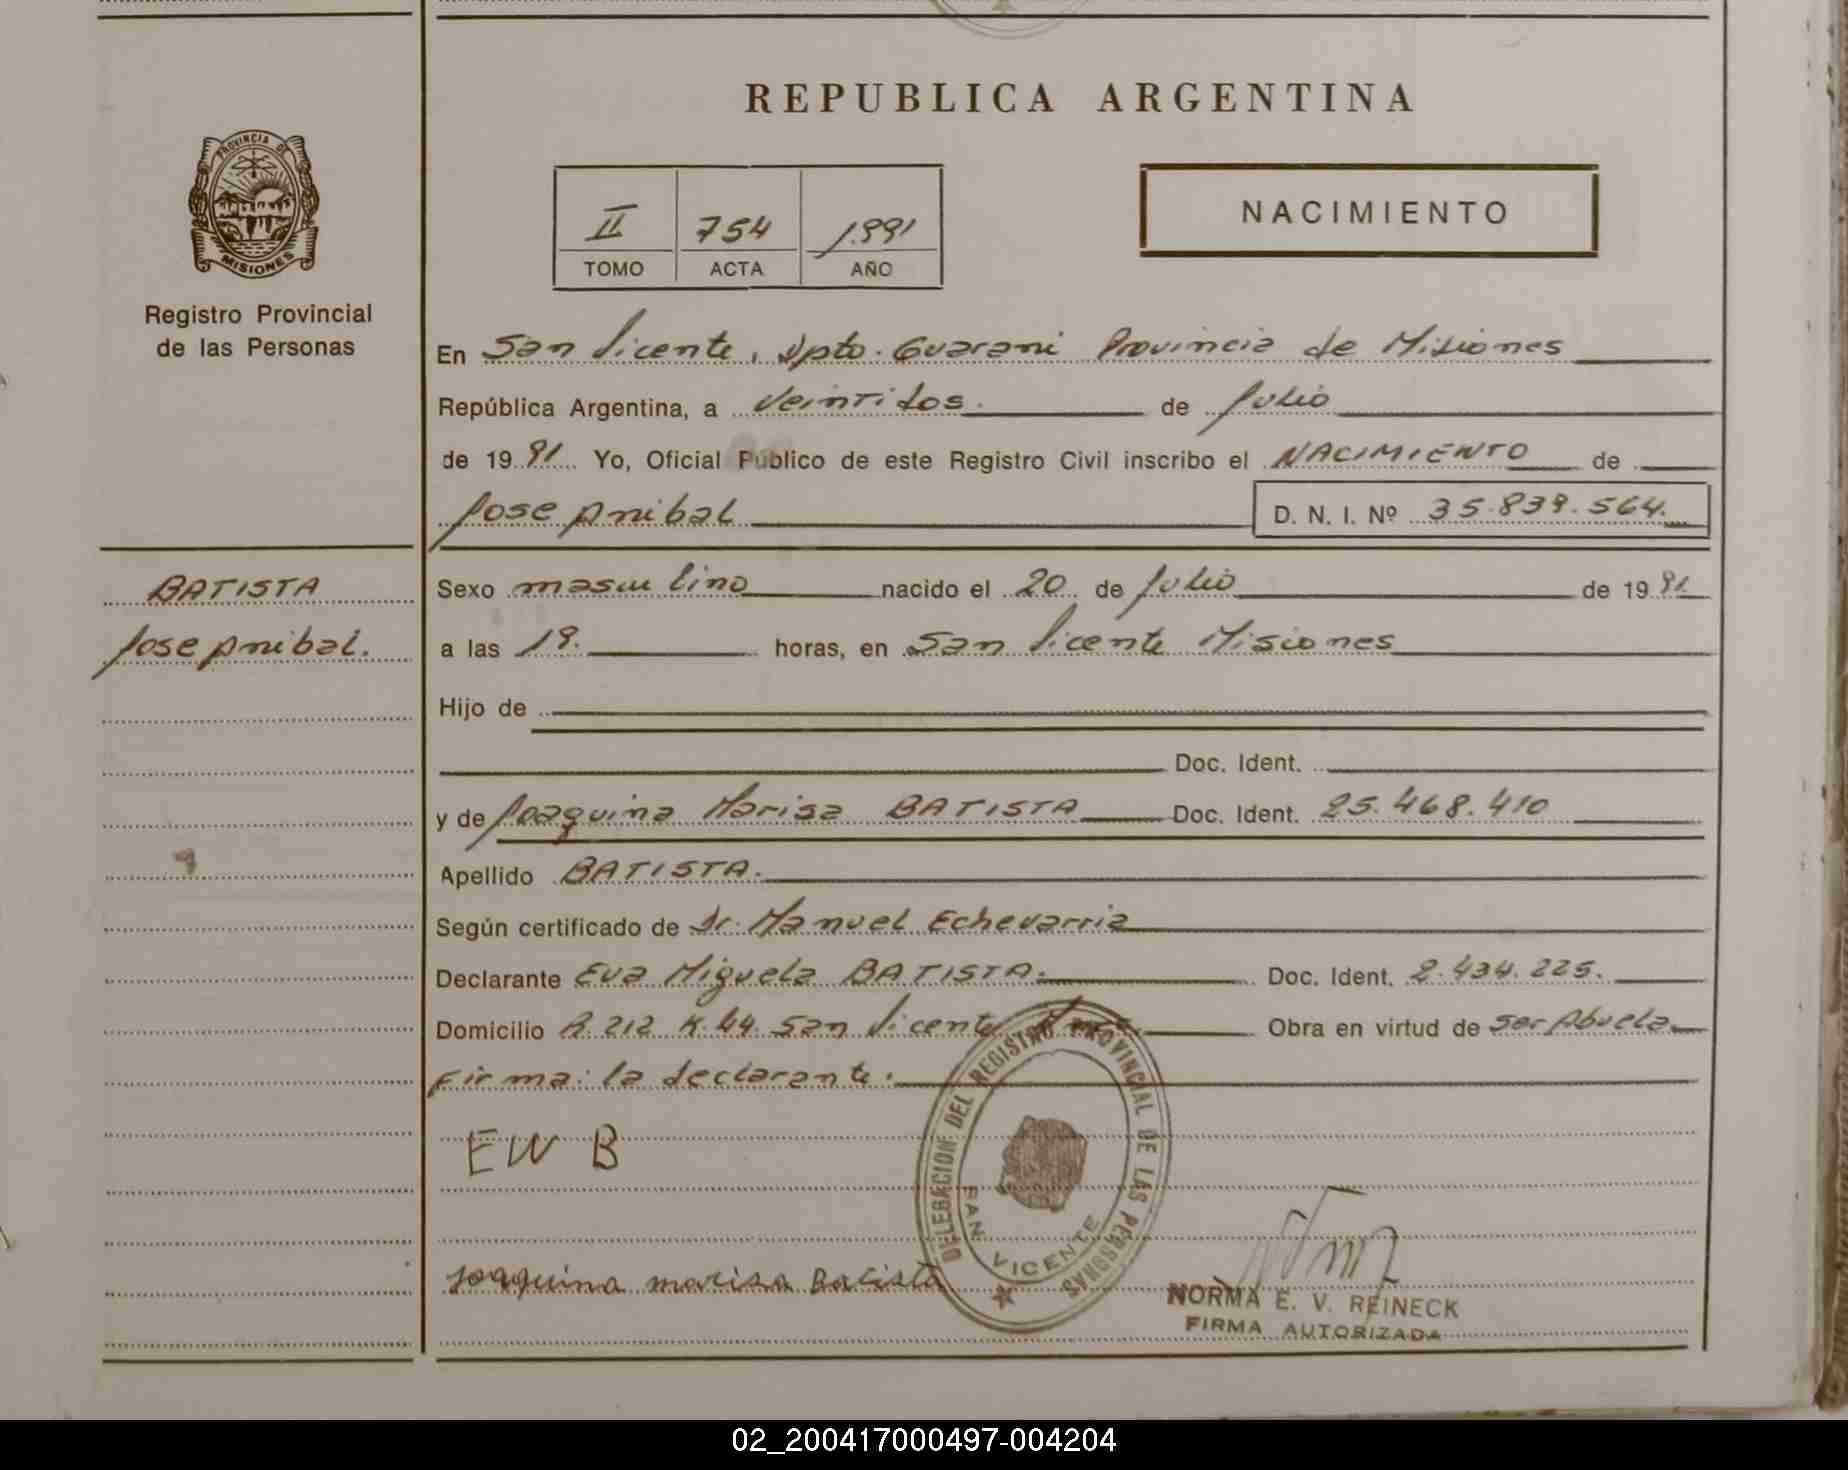 REPUBLICA ARGENTINA
PROVINCIA DE
MISIONES
Registro Provincial
de las Personas
II 754 1991
TOMO ACTA AÑO
NACIMIENTO
En San Vicente, Dpto. Guarani Provincia de Misiones
República Argentina, a Veintidos. de Julio
de 1991. Yo, Oficial Público de este Registro Civil inscribo el NACIMIENTO de
Jose Anibal D. N. I. Nº 35.839.564.
BATISTA
Jose Anibal.
Sexo masculino nacido el 20 de Julio de 1991.
a las 19. horas, en San Vicente Misiones
Hijo de
Doc. Ident.
y de Joaquina Marisa BATISTA Doc. Ident. 25.468.410
Apellido BATISTA.
Según certificado de Dr. Manuel Echevarria
Declarante Eva Miguela BATISTA. Doc. Ident. 2.434.225.
Domicilio R.212 K.44. San Vicente Mnes. Obra en virtud de ser Abuela
Firma: la declarante.
EW B
DELEGACION DEL REGISTRO PROVINCIAL DE LAS PERSONAS
SAN VICENTE
Joaquina marisa Batista
NORMA E. V. REINECK
FIRMA AUTORIZADA
02_200417000497-004204